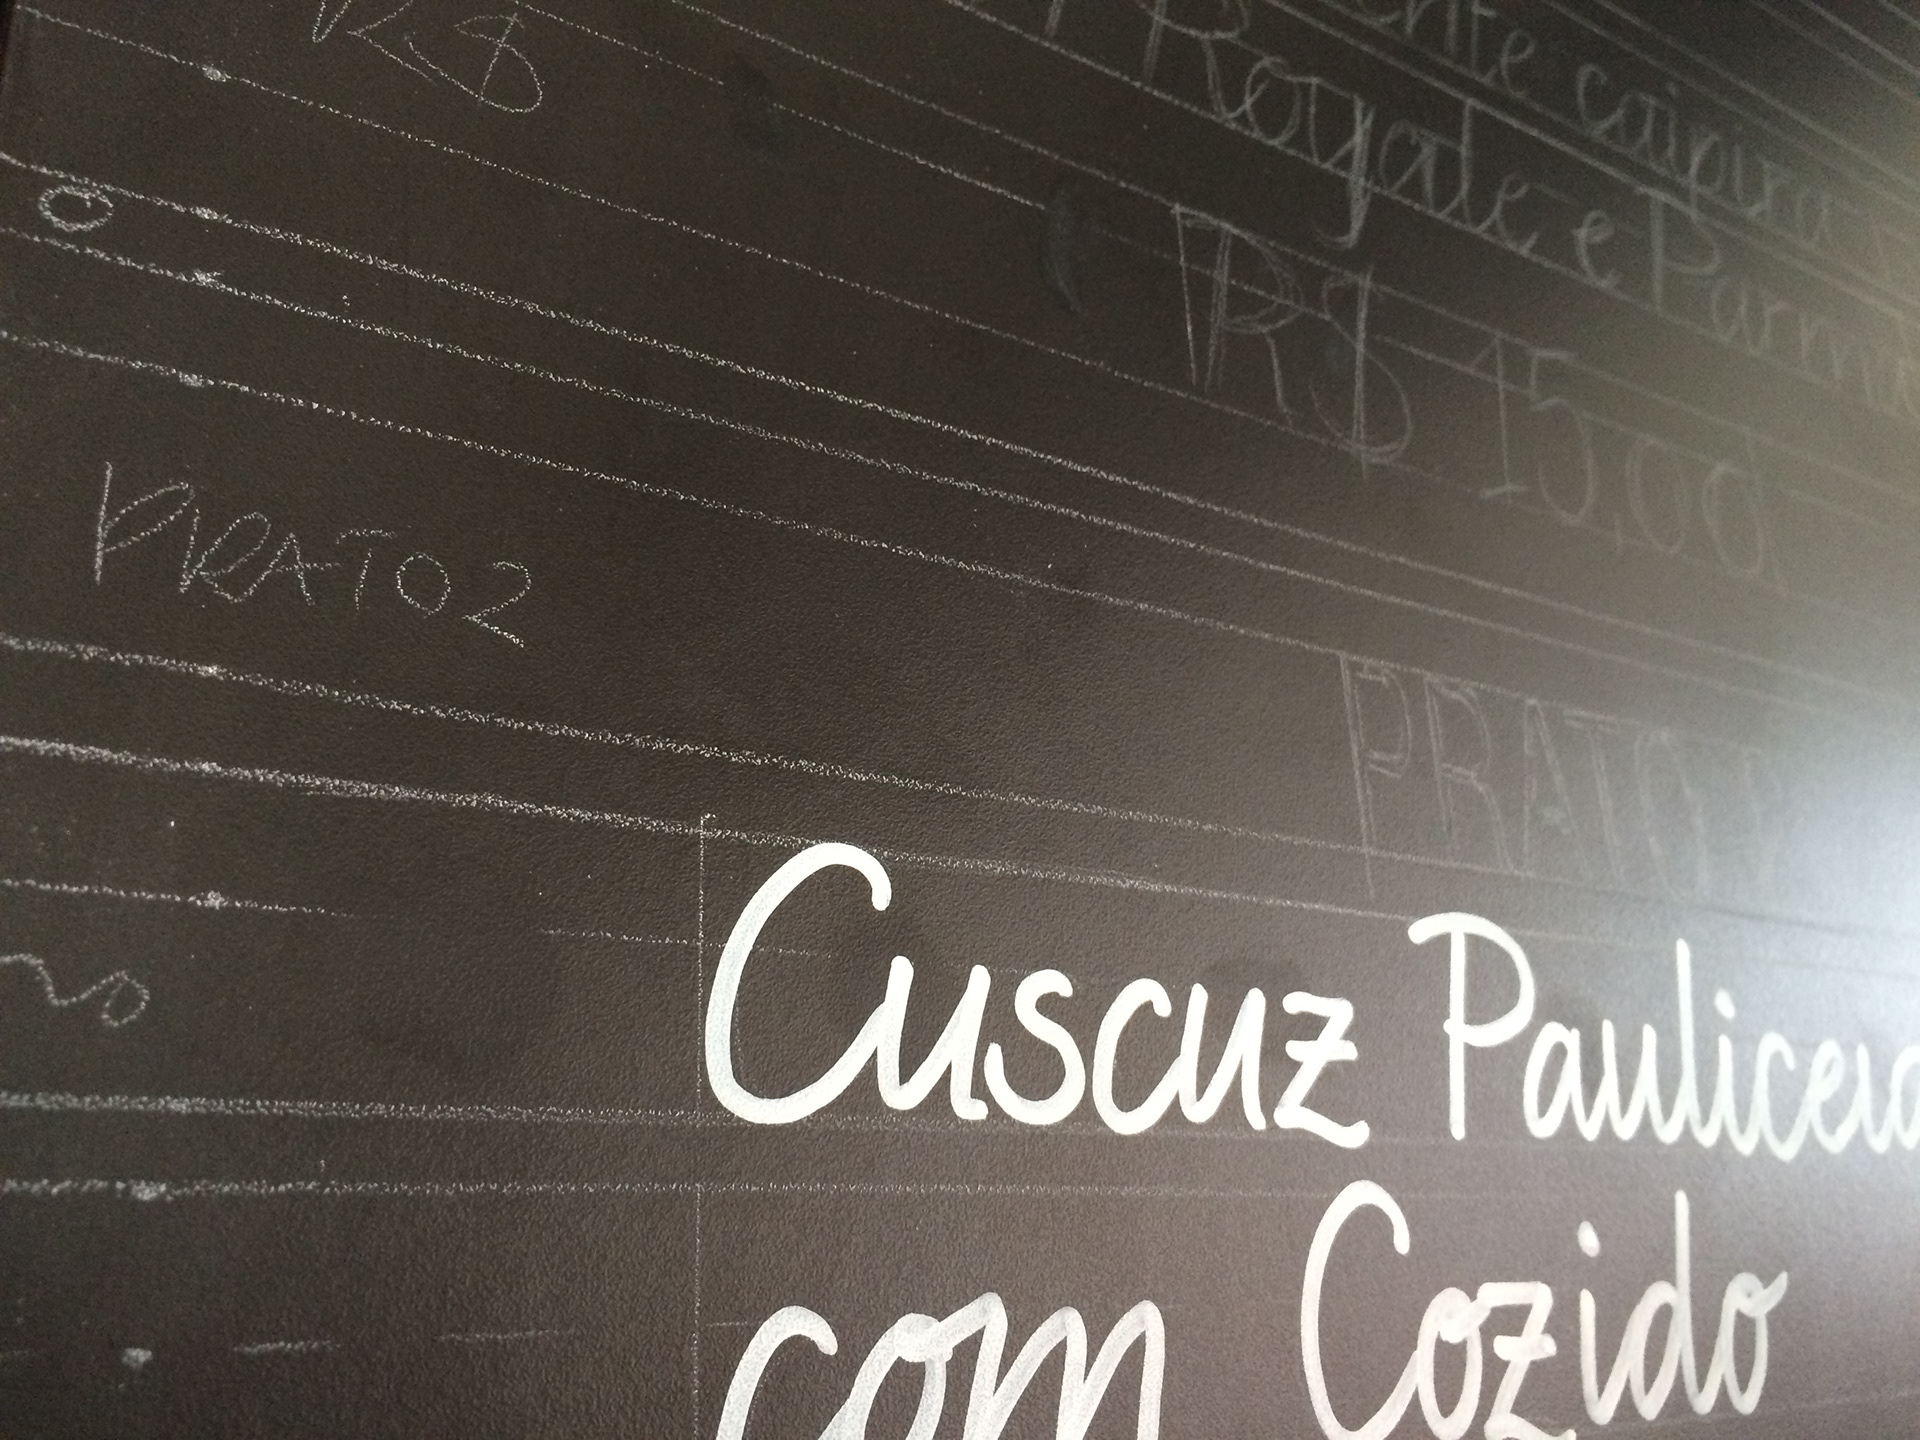 R$
caipira
Royale e Parm
R$ 15,00
PRATO 2
PRATO
Cuscuz Pauliceia
com Cozido